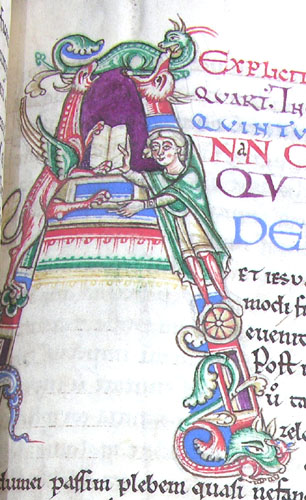 EXPLICIT
QUARTI. IN
QUINTU
NAN C
QU
DE
ET IESU
modi f
evenit
Post
tā
zele
dumei passim plebem quasi